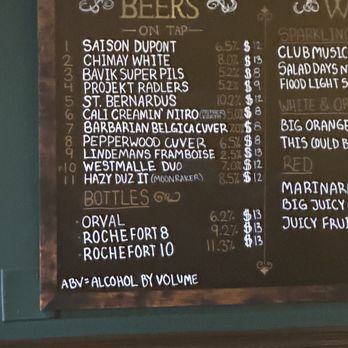 BEERS
ON TAP
1 SAISON DUPONT 6.5% $12
2 CHIMAY WHITE 8.0% $13
3 BAVIK SUPER PILS 5.2% $8
4 PROJEKT RADLERS 5.2% $9
5 ST. BERNARDUS 10.2% $12
6 CALI CREAMIN' NITRO 5.0% $8
7 BARBARIAN BELGICA CUVER $8
8 PEPPERWOOD CUVER 6.5% $8
9 LINDEMANS FRAMBOISE 2.5% $13
10 WESTMALLE DUO 7.0% $12
11 HAZY DUZ IT (MOONRAKER) 8.5% $12
BOTTLES
- ORVAL 6.2% $13
- ROCHEFORT 8 9.2% $13
- ROCHEFORT 10 11.3% $13
ABV = ALCOHOL BY VOLUME
W
SPARKLING
CLUB MUSIC
SALAD DAYS N
FLOOD LIGHT S
WHITE & O
BIG ORANGE
THIS COULD B
RED
MARINARA
BIG JUICY
JUICY FRUI